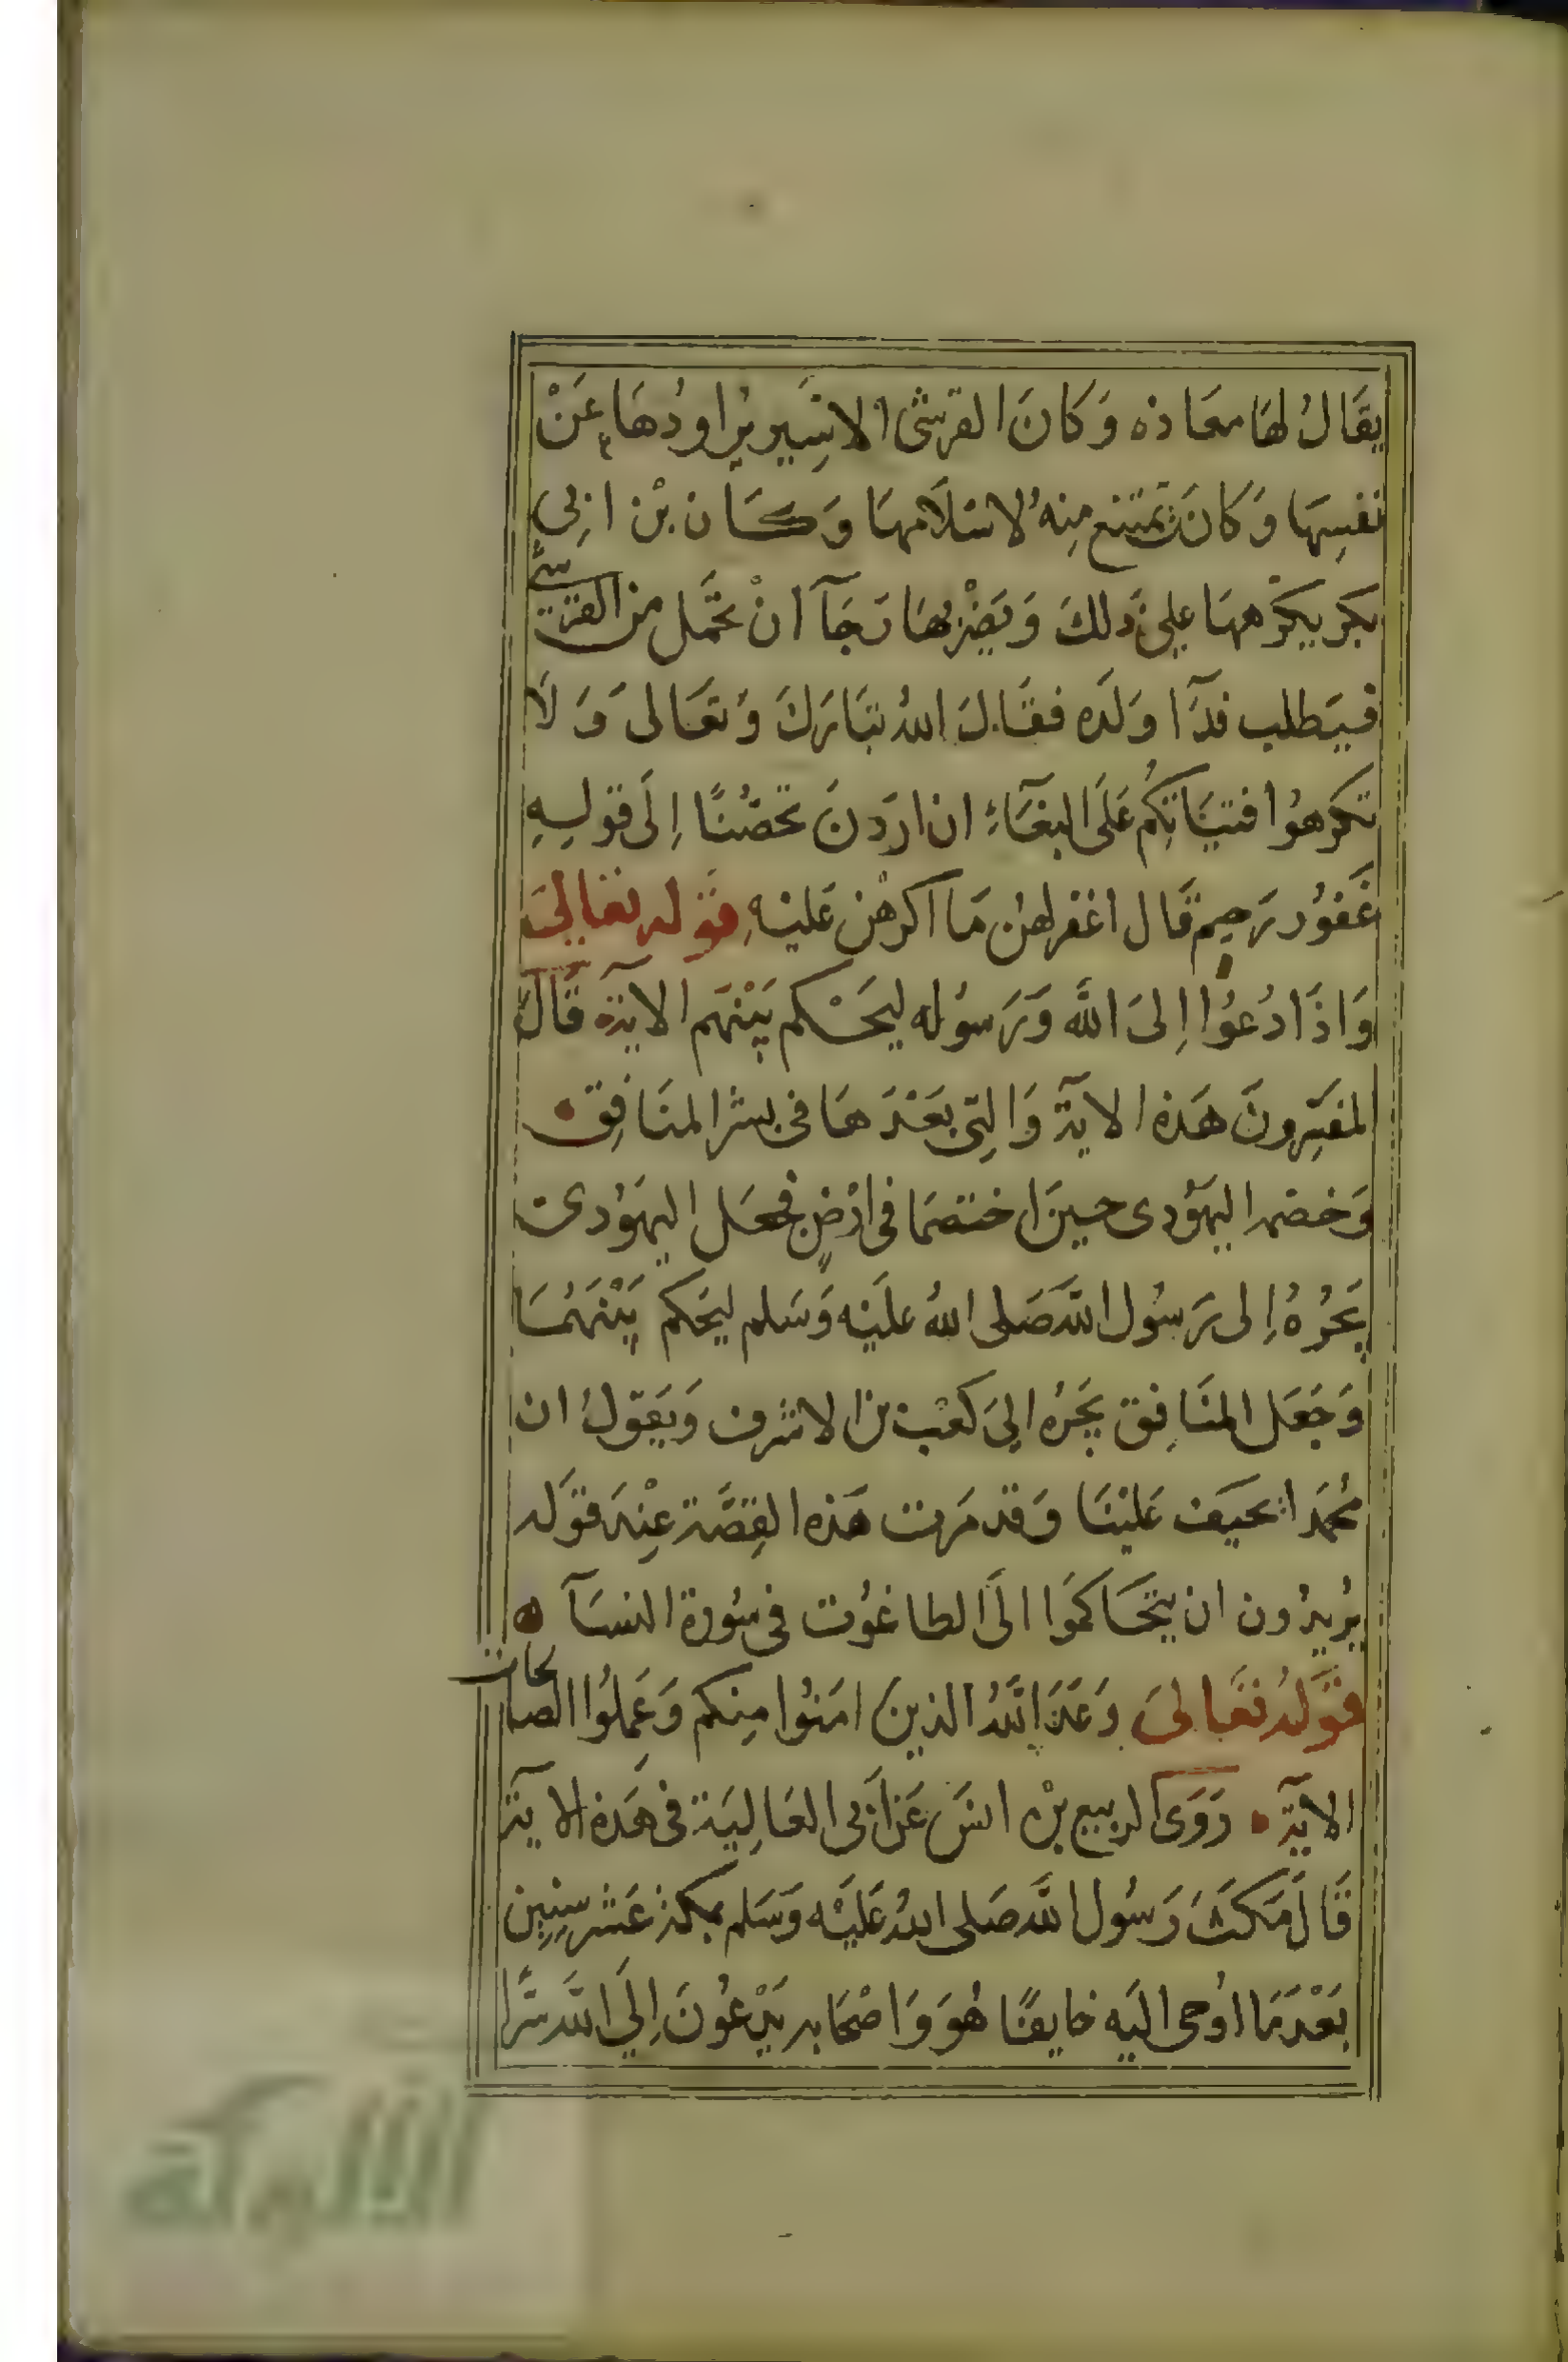 يقَالُ لهَا معَاذه وَكانَ القرشى الاسِير يرُاودُهَا عَنْ
نفسِهَا وَكانَت تمتنع مِنهُ لاسْلَامهَا وَكَان بْن ابِى
بكر يكرهُهَا على ذَلكَ وَيَضْربهَا رَجَآ انْ تحَمل من القرشى
فيَطلب فدَآ وَلَده فقَالَ اللهُ تبَارَكَ وَتعَالى وَ لَا
تكرهوُا فتيَاتِكُم عَلَى البغَآءِ ان ارَدنَ تحَصّنًا اِلَى قولِهِ
غَفوُر رَحِيم قَال اغفر لهُن مَا اكرهْن عَليْهِ قوَله تعَالىَ
وَاذَا دُعوُا اِلىَ اللَّه وَرَسوُله ليحَكم بَيْنهَم الايَة قَالَ
المفسِرونَ هَذه الايَة وَالتِى بعَدَهَا فى بشر المنَافِق
وَخصْمه اليهَوُدى حينَ اختصَمَا فى ارْضٍ فجعَل اليهَوُدى
يَجرُهُ اِلى رَسوُل اللَّه صَلى اللهُ عَليْه وَسَلم ليحَكم بَيْنهَمُا
وَجَعَل المنَافِق يَجرُه الىَ كعَب بن الاشرف وَيَقولُ ان
محُمَدا يحيَف عَليْنَا وَقد مَرت هَذه القِصَّة عِنْدَ قوَله
يرُيدُون ان يتحَاكمَوا الَى الطاغوُت فى سوُرة النسَآ
قوَلهُ تعَالىَ وَعَدَ اللَّهُ الذينَ امَنوُا مِنكم وَعَملُوا الصالحات
الايَة رَوَى الربيع بْن انسَ عَن اَبى العَاليَة فى هَذه الايَة
قَالَ مَكثَ رَسوُل اللَّه صَلى اللهُ عَليْه وَسَلم بمكة عَشر سِنِين
بَعْدَمَا اوُحى اليَه خايفًا هُوَ وَاصْحَابه يَدْعُونَ اِلَى اللَّه سرًّا
الألوكة